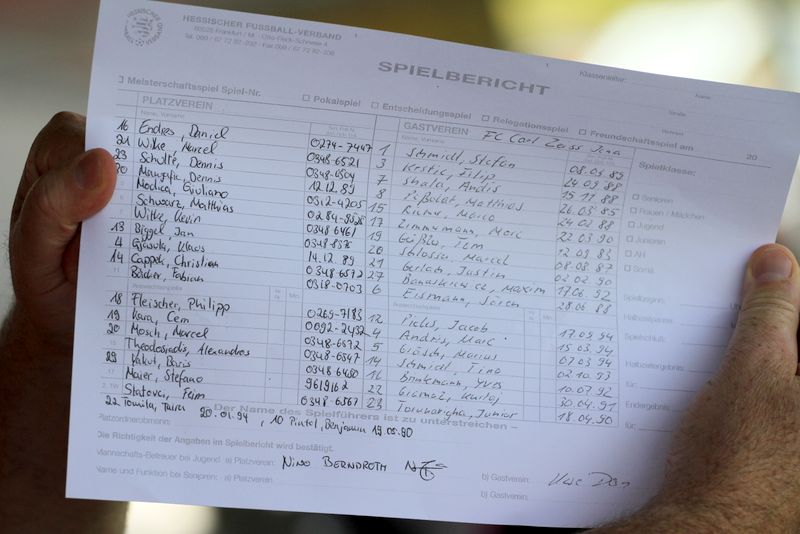 HESSISCHER FUSSBALL-VERBAND
60528 Frankfurt / M. - Otto-Fleck-Schneise 4
Tel. 069 / 67 72 82-232 · Fax 069 / 67 72 82-238
SPIELBERICHT
Klassenleiter:
Name
Straße
Meisterschaftsspiel Spiel-Nr. Pokalspiel Entscheidungsspiel Relegationsspiel Freundschaftsspiel am 20
PLATZVEREIN
GASTVEREIN FC Carl Zeiss Jena
Spielklasse:
Name, Vorname
16 Endres, Daniel 0274-7447
21 Wilke, Marcel 0348-6521
23 Schulte, Dennis 0348-6504
30 Mangafic, Dennis 12.12.89
Modica, Giuliano 0312-4205
Schwarz, Matthias
Wilke, Kevin 0348 6461
13 Biggel, Jan 0348 8576
4 Gjasula, Klaus 14.12.89
14 Cappek, Christian 0348-6572
11 Bäcker, Fabian 0318-0703
Auswechselspieler
18 Fleischer, Philipp 0269-7183
19 Kara, Cem 0092-2432
20 Mosch, Marcel 0348-6572
15 Theodosiadis, Alexandros 0348-6547
29 Yakut, Baris 0348 6460
17 Maier, Stefano 9619162
Statovci, Fatm 0348-6567
22 Tomila, 20.01.94, 10 Pintol, Benjamin 19.05.90
1 Schmidt, Stefan 08.08.89
3 Krstic, Filip 24.09.88
7 Shala, Andis 15.11.88
8 Peßolat, Matthias 26.03.85
15 Riemer, Marco 24.02.88
17 Zimmermann, Marc 22.03.90
19 Geißler, Tom 12.09.83
20 Schlosser, Marcel 08.08.87
21 Gerlach, Justin 02.02.90
27 Banaskiewicz, Maxim 17.06.92
6 Eismann, Sören 28.06.88
12 Pichs, Jacob 17.09.94
4 Andris, Marc 15.03.94
5 Gläsch, Marius 07.03.94
14 Schmidt, Tino 02.10.93
16 Brinkmann, Yves 10.07.92
22 30.04.91
23 Junior 18.04.90
Senioren
Frauen / Mädchen
Jugend
Junioren
AH
Soma
Spielbeginn:
Halbzeitpause:
Spielschluß:
Halbzeitergebnis
für:
Endergebnis
für:
Der Name des Spielführers ist zu unterstreichen –
Platzordnerobmann:
Die Richtigkeit der Angaben im Spielbericht wird bestätigt.
Mannschafts-Betreuer bei Jugend a) Platzverein: NINO BERNDROTH b) Gastverein: Uwe
Name und Funktion bei Senioren: a) Platzverein: b) Gastverein: